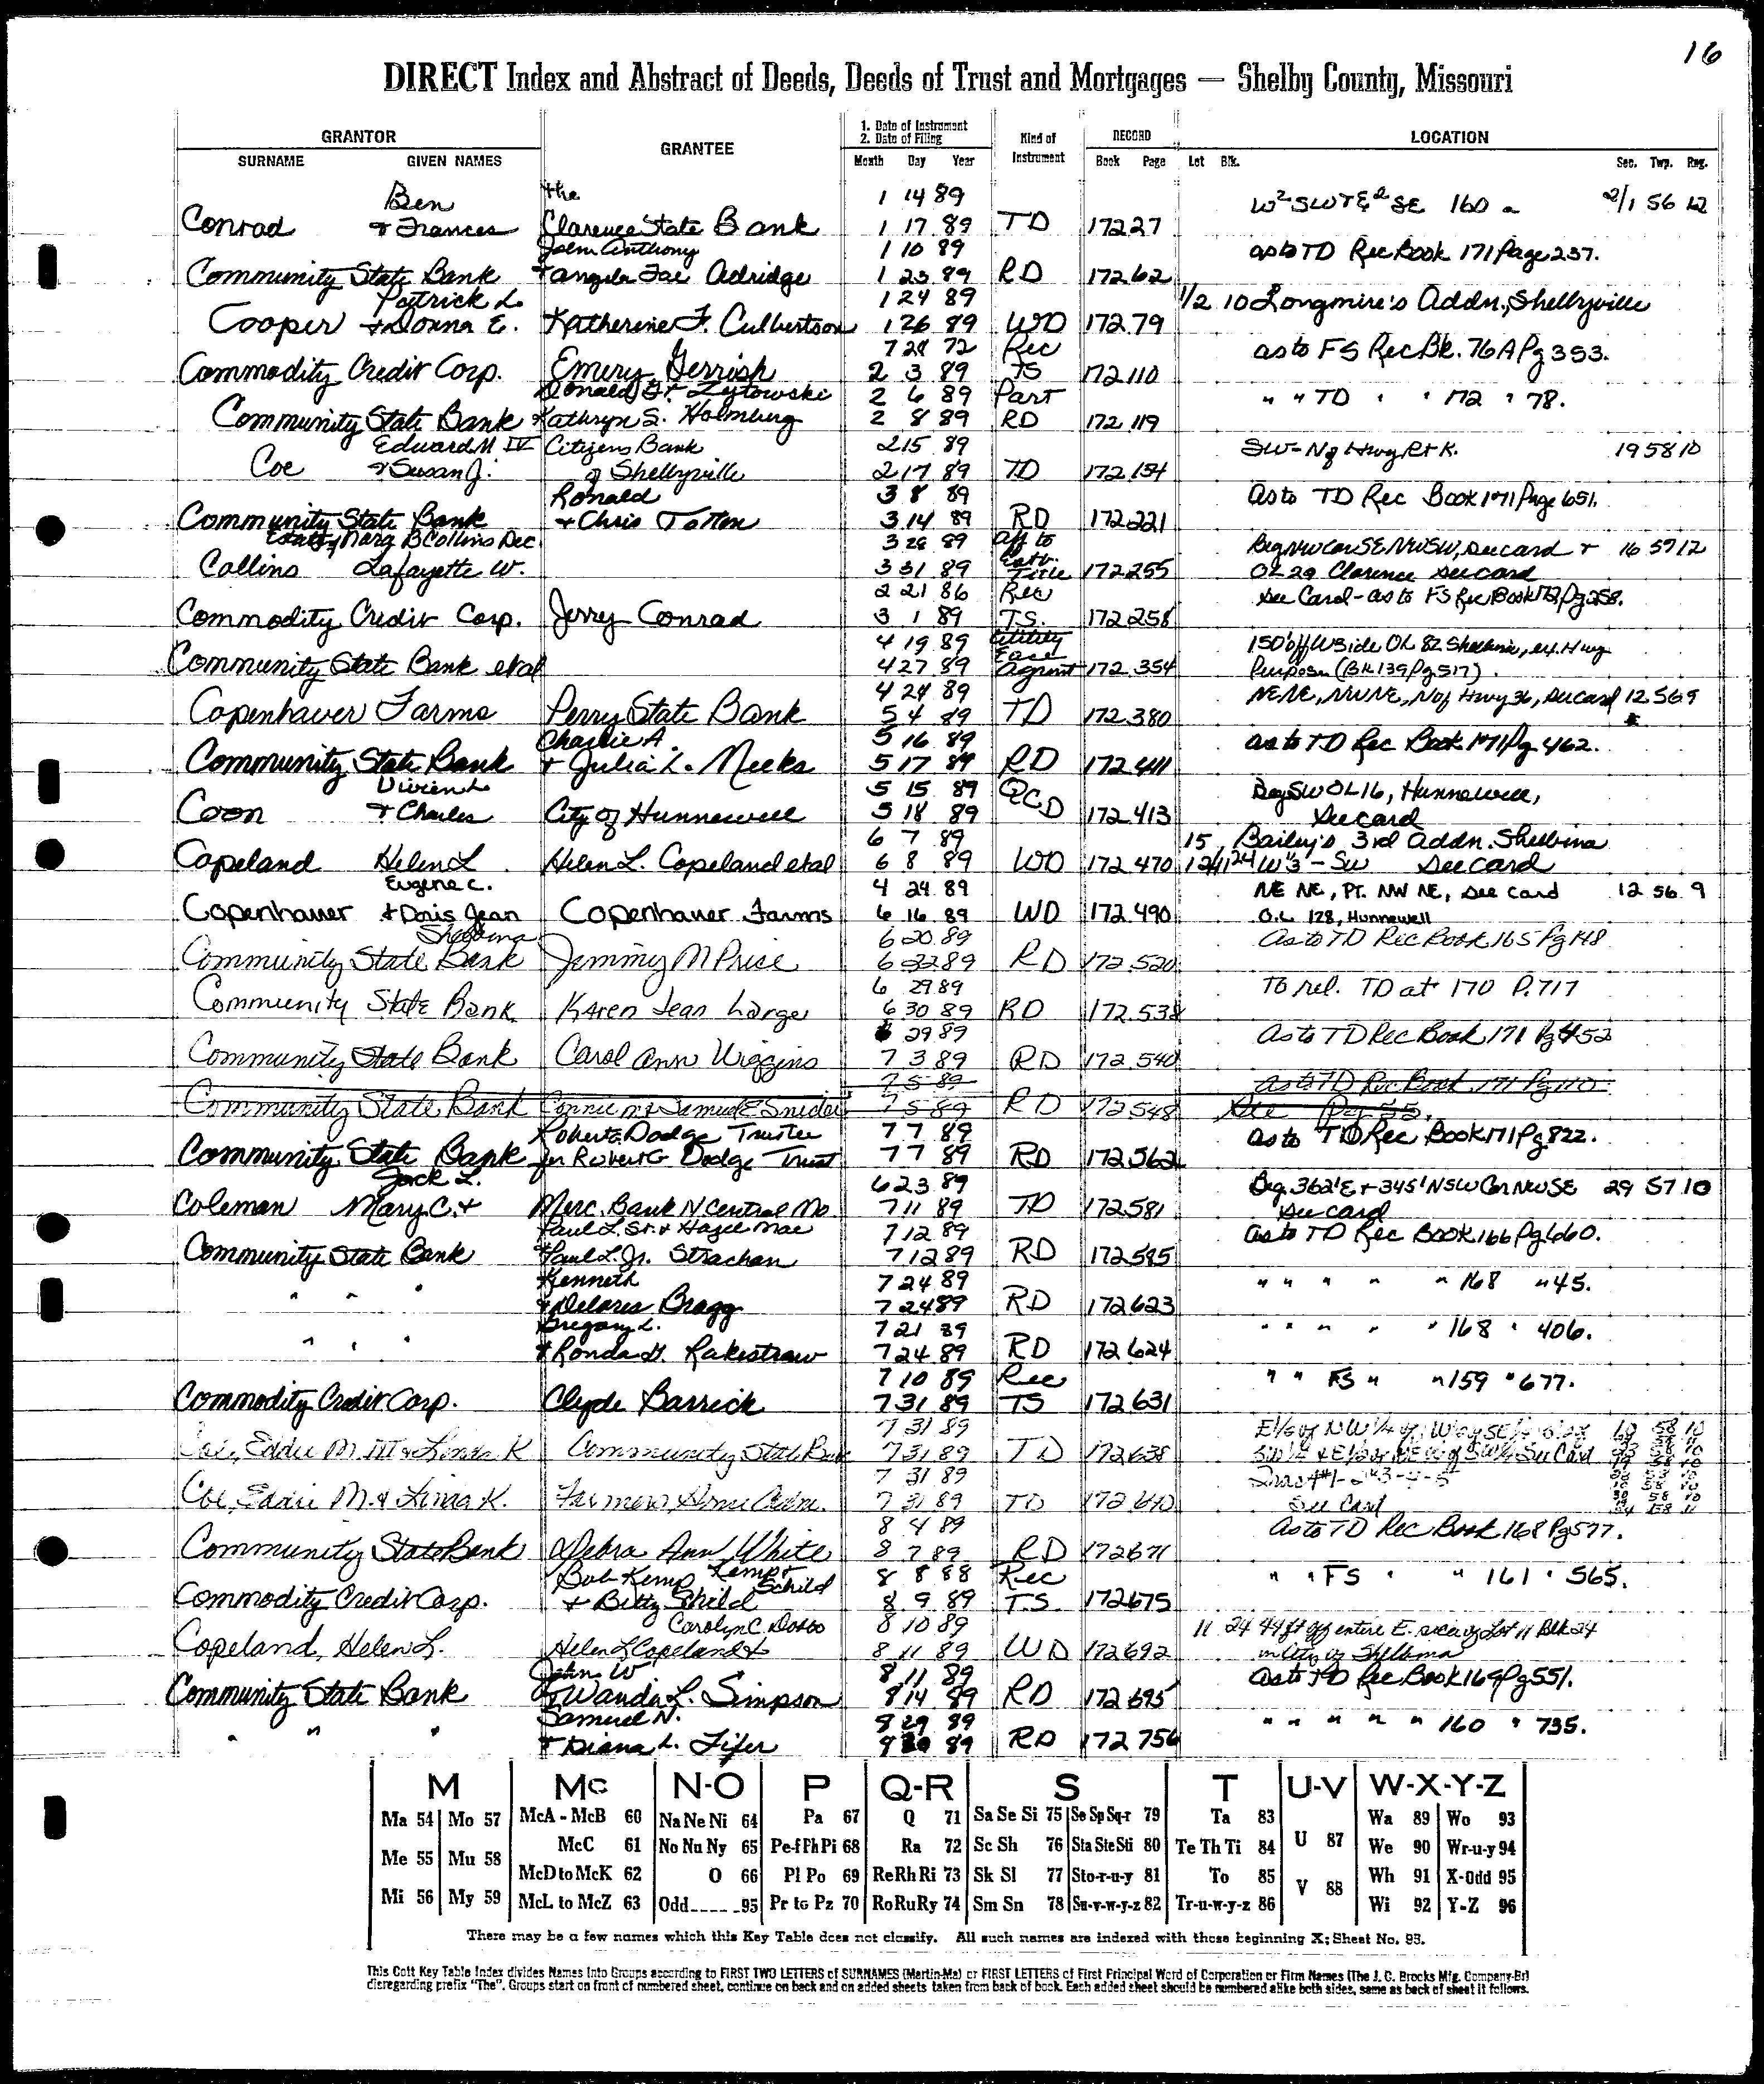 16
DIRECT Index and Abstract of Deeds, Deeds of Trust and Mortgages — Shelby County, Missouri
GRANTOR GRANTEE 1. Date of Instrument 2. Date of Filing Kind of Instrument RECORD LOCATION
SURNAME GIVEN NAMES Month Day Year Book Page Lot Blk. Sec. Twp. Rng.
Ben the 1 14 89 W² SW + E² SE 160 a 2/1 56 12
Conrad & Frances Clarence State Bank 1 17 89 TD 172 27
John Anthony 1 10 89 as to TD Rec Book 171 Page 237.
Community State Bank & Angela Fae Aldridge 1 23 89 RD 172 62
Patrick L. 1 24 89 1/2 10 Longmire's Addn., Shelbyville
Cooper & Donna E. Katherine F. Culbertson 1 26 89 WD 172 79
7 28 72 Rec as to FS Rec Bk. 76A Pg 353.
Commodity Credit Corp. Emery Gerrish 2 3 89 TS 172 110
Donald G. & Zytowski 2 6 89 Part " " TD " " 172 " 78.
Community State Bank Kathryn S. Holmburg 2 8 89 RD 172 119
Edward M IV Citizens Bank 2 15 89 SW - N of Hwy R & K. 19 58 10
Coe & Susan J. of Shelbyville 2 17 89 TD 172 154
Ronald 3 8 89 As to TD Rec Book 171 Page 651.
Community State Bank & Chris Totten 3 14 89 RD 172 221
Estate of Marg B Collins Dec 3 28 89 Aff to Beg NW Cor SE NW SW, See card & 16 57 12
Collins Lafayette W. 3 31 89 Estb. Title 172 255 OL 29 Clarence See card
2 21 86 Rec See Card - as to FS Rec Book 172, Pg 258.
Commodity Credit Corp. Jerry Conrad 3 1 89 T.S. 172 258
4 19 89 Utility 150' off W side OL 82 Shelbina, ex. Hwy
Community State Bank etal 4 27 89 Ease Agrmt 172 354 Purposes (Bk 139 Pg 517).
4 24 89 NE NE, NW NE, N of Hwy 36, See card 12 56 9
Copenhaver Farms Perry State Bank 5 4 89 TD 172 380
Charlie A. 5 16 89 as to TD Rec Book 171 Pg 462.
Community State Bank & Julia L. Meeks 5 17 89 RD 172 411
Vivien L 5 15 89 QCD Beg SW OL 16, Hunnewell,
Coon & Charles City of Hunnewell 5 18 89 172 413 See card
6 7 89 15, Bailey's 3rd Addn. Shelbina
Copeland Helen L. Helen L. Copeland etal 6 8 89 WD 172 470 W⅓ - SW See card
Eugene C. 4 24 89 NE NE, PT. NW NE, See Card 12 56 9
Copenhaver & Doris Jean Copenhaver Farms 6 16 89 WD 172 490 O.L. 128, Hunnewell
Shelbina 6 20 89 As to TD Rec Book 165 Pg 148
Community State Bank Jimmy M Price 6 22 89 RD 172 520
6 29 89 To rel. TD at 170 P. 717
Community State Bank Karen Jean Large 6 30 89 RD 172 538
6 29 89 As to TD Rec Book 171 Pg 452
Community State Bank Carol Ann Wiggins 7 3 89 RD 172 540
7 5 89 as to TD Rec Book 171 Pg 110
Community State Bank Connie M & Samuel E Snider 7 5 89 RD 172 548 See Pg 55.
Robert G Dodge Trustee 7 7 89 as to TD Rec Book 171 Pg 822.
Community State Bank for Robert G Dodge Trust 7 7 89 RD 172 562
Jack L. 6 23 89 Beg. 362' E & 345' N SW Cor NW SE 29 57 10
Coleman Mary C. & Merc. Bank N Central Mo. 7 11 89 TD 172 581 See card
Paul L. Sr. & Hazel Mae 7 12 89 as to TD Rec Book 166 Pg 660.
Community State Bank & Paul L. Jr. Strachan 7 12 89 RD 172 585
Kenneth 7 24 89 " " " " " 168 " 45.
" " " & Delores Bragg 7 24 89 RD 172 623
Gregory L. 7 21 89 " " " " " 168 " 406.
" " & Ronda G. Rakestraw 7 24 89 RD 172 624
7 10 89 Rec " " FS " " 159 " 677.
Commodity Credit Corp. Clyde Barrick 7 31 89 TS 172 631
7 31 89
Coe, Eddie M. III & Linda K Community State Bank 7 31 89 TD 172 638 See Card
7 31 89
Coe, Eddie M. & Linda K. Farmers Home Adm. 7 31 89 TD 172 640 See Card
8 4 89 As to TD Rec Book 168 Pg 577.
Community State Bank Debra Ann White 8 7 89 RD 172 671
Bob Kemp Kemp & Schild 8 8 88 Rec " " FS " " 161 " 565.
Commodity Credit Corp. & Betty Shild 8 9 89 T.S. 172 675
Carolyn C. Dobbs 8 10 89 11 24 44 ft off entire E. side of Lot 11 Blk 24
Copeland, Helen L. Helen L Copeland & 8 11 89 WD 172 692 in City of Shelbina
John W. 8 11 89 as to TD Rec Book 169 Pg 551.
Community State Bank & Wanda L. Simpson 8 14 89 RD 172 695
Samuel N. 8 29 89 " " " " " 160 " 735.
" " " & Diana L. Fifer 8 30 89 RD 172 756
M Mc N-O P Q-R S T U-V W-X-Y-Z
Ma 54 Mo 57 McA - McB 60 Na Ne Ni 64 Pa 67 Q 71 Sa Se Si 75 Se Sp Sq-r 79 Ta 83 U 87 Wa 89 Wo 93
McC 61 No Nu Ny 65 Pe-f Ph Pi 68 Ra 72 Sc Sh 76 Sta Ste Sti 80 Te Th Ti 84 We 90 Wr-u-y 94
Me 55 Mu 58 McD to McK 62 O 66 Pl Po 69 Re Rh Ri 73 Sk Sl 77 Sto-r-u-y 81 To 85 V 88 Wh 91 X-Odd 95
Mi 56 My 59 McL to McZ 63 Odd 95 Pr to Pz 70 Ro Ru Ry 74 Sm Sn 78 Su-v-w-y-z 82 Tr-u-w-y-z 86 Wi 92 Y-Z 96
There may be a few names which this Key Table does not classify. All such names are indexed with those beginning X; Sheet No. 95.
This Cott Key Table Index divides Names into Groups according to FIRST TWO LETTERS of SURNAMES (Martin-Ma) or FIRST LETTERS of First Principal Word of Corporation or Firm Names (The J. C. Brocks Mfg. Company-Br)
disregarding prefix "The". Groups start on front of numbered sheet, continue on back and on added sheets taken from back of book. Each added sheet should be numbered alike both sides, same as back of sheet it follows.